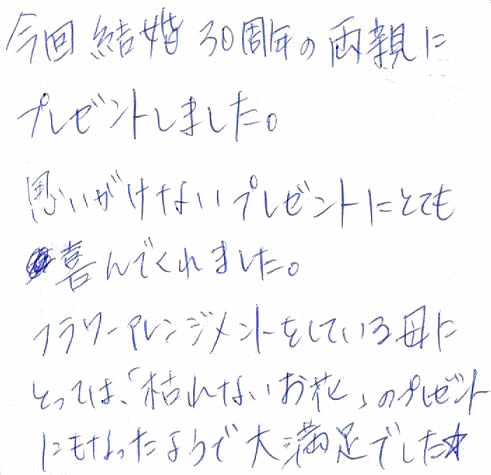 今回結婚30周年の両親に
プレゼントしました。
思いがけないプレゼントにとても
喜んでくれました。
フラワーアレンジメントをしている母に
とっては、「枯れないお花」のプレゼント
にもなったようで大満足でした☆